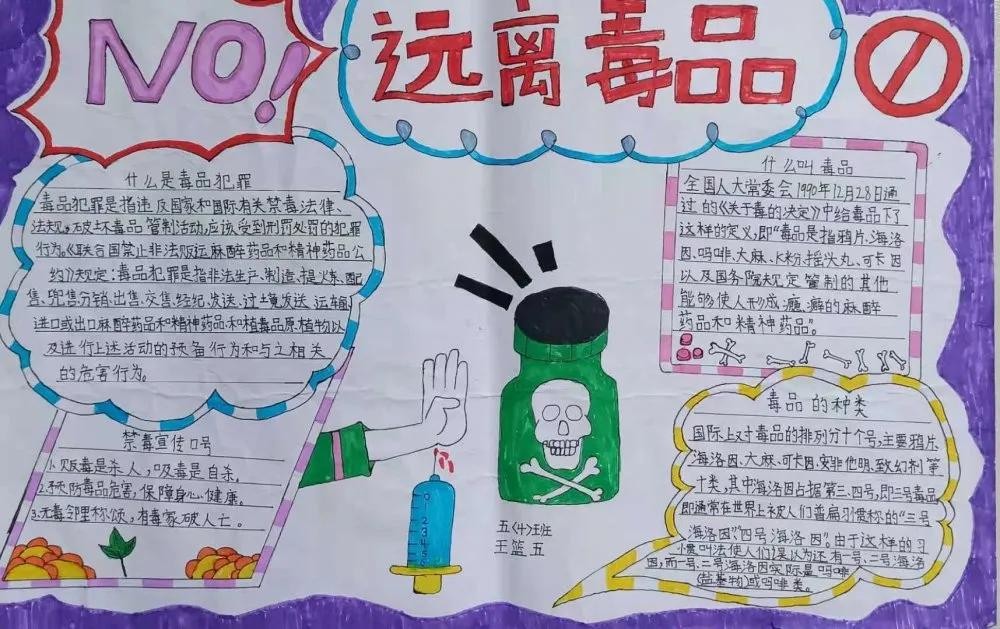 NO!
远离毒品
什么是毒品犯罪
毒品犯罪是指违反国家和国际有关禁毒法律、
法规,破坏毒品管制活动,应该受到刑罚处罚的犯罪
行为。《联合国禁止非法贩运麻醉药品和精神药品公
约》规定:毒品犯罪是指非法生产、制造、提炼、配
售、兜售、分销、出售、交售、经纪、发送、过境发送、运输、
进口或出口麻醉药品和精神药品和植毒品原植物以
及进行上述活动的预备行为和与之相关
的危害行为。
什么叫毒品
全国人大常委会1990年12月28日通
过的《关于毒的决定》中给毒品下了
这样的定义,即“毒品是指鸦片、海洛
因、吗啡、大麻、K粉、摇头丸、可卡因
以及国务院规定管制的其他
能够使人形成瘾癖的麻醉
药品和精神药品”。
禁毒宣传口号
1.贩毒是杀人,吸毒是自杀。
2.预防毒品危害,保障身心健康。
3.无毒邻里称颂,有毒家破人亡。
0
1
2
3
4
5
五〈4〉班
王篮五
毒品的种类
国际上对毒品的排列分十个号,主要鸦片、
海洛因、大麻、可卡因、安非他明、致幻剂等
十类,其中海洛因占据第三、四号,即三号毒品
即通常在世界上未被人们普遍习惯称的“三号
海洛因”“四号海洛因”。由于这样的习
惯叫法使人们误以为还有一号、二号海洛
因,而一号、二号海洛因实际是吗啡
(盐基物)或吗啡类。